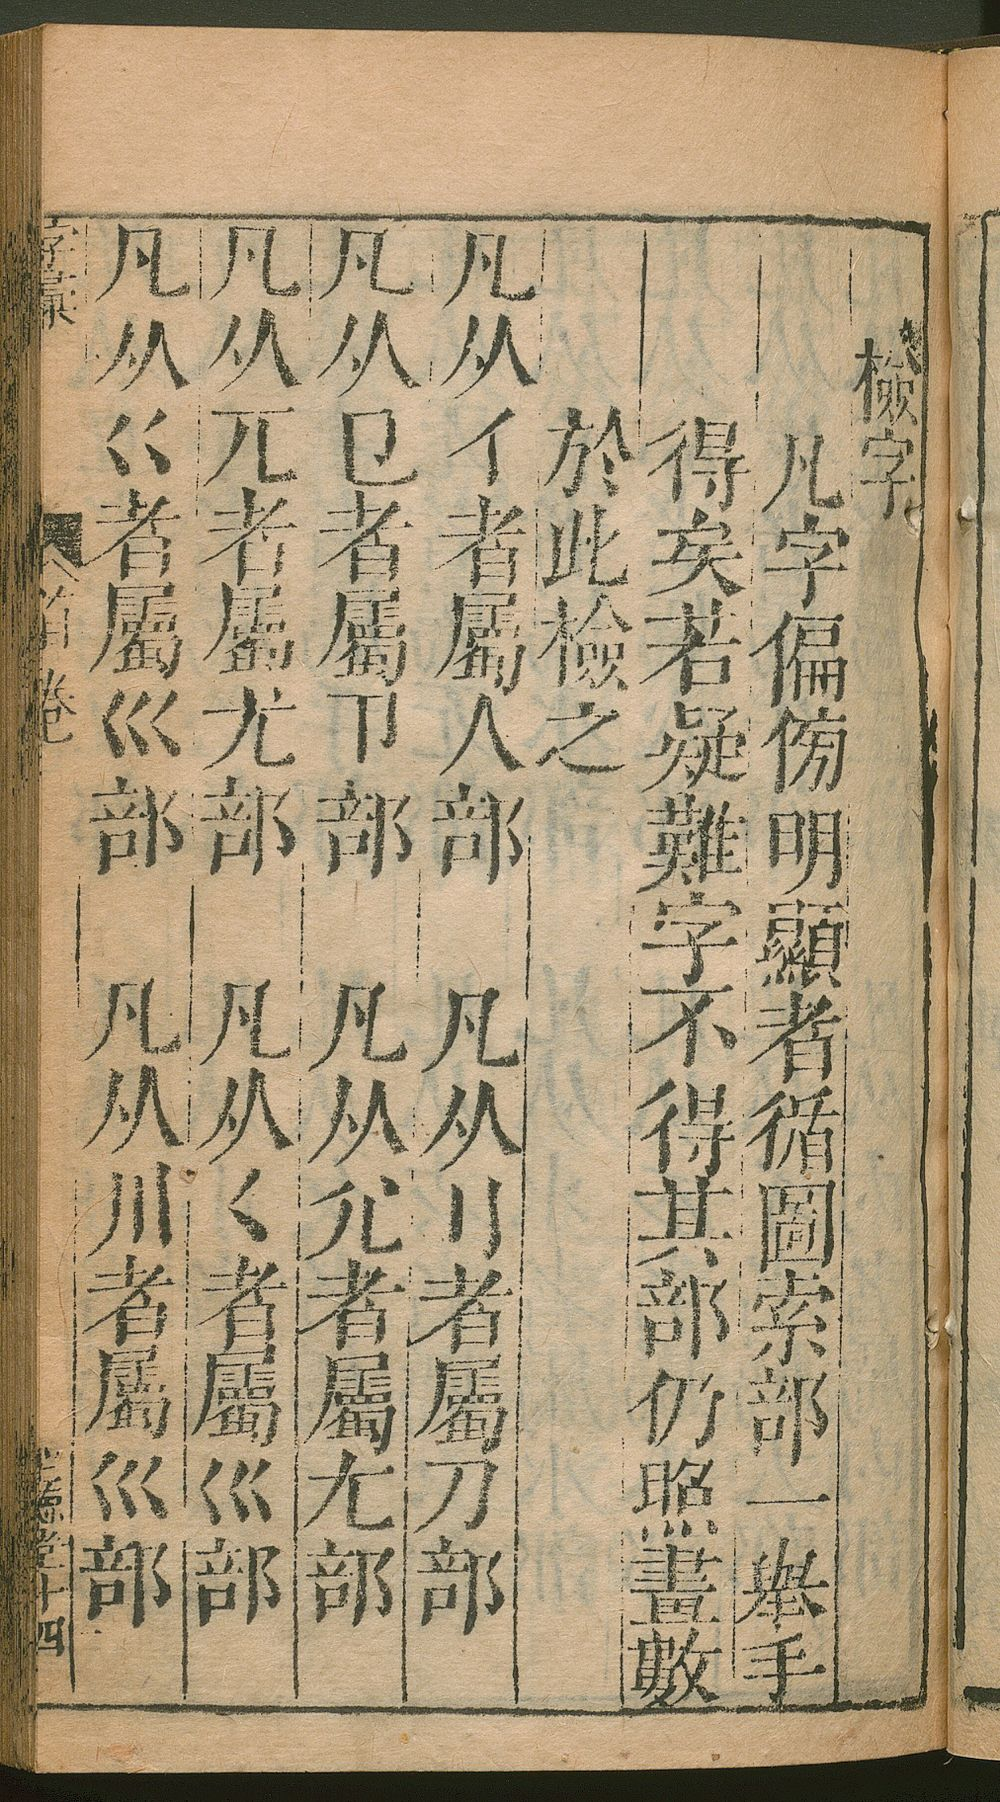 檢字
凡字偏傍明顯者循圖索部一舉手
得矣若疑難字不得其部仍照畫數
於此檢之
凡从亻者屬人部　凡从刂者屬刀部
凡从㔾者屬卩部　凡从尣者屬尢部
凡从兀者屬尢部　凡从𡿨者屬巛部
凡从巜者屬巛部　凡从川者屬巛部
字彙　首卷　堂十四